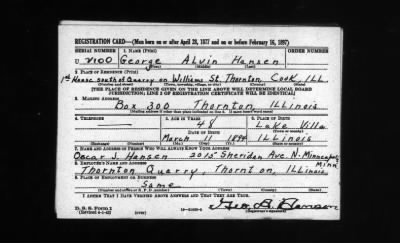 REGISTRATION CARD—(Men born on or after April 28, 1877 and on or before February 16, 1897)
SERIAL NUMBER 1. NAME (Print) ORDER NUMBER
U 2100 George Alvin Hansen
(First) (Middle) (Last)
2. PLACE OF RESIDENCE (Print)
1st House south of Quarry on Williams St. Thornton, Cook, ILL.
[THE PLACE OF RESIDENCE GIVEN ON THE LINE ABOVE WILL DETERMINE LOCAL BOARD
JURISDICTION; LINE 2 OF REGISTRATION CERTIFICATE WILL BE IDENTICAL]
3. MAILING ADDRESS
Box 300 Thornton, ILLinois
4. TELEPHONE 5. AGE IN YEARS 6. PLACE OF BIRTH
48 Lake Villa
DATE OF BIRTH (Town or county)
March 11 1894 ILLinois
(State or country)
7. NAME AND ADDRESS OF PERSON WHO WILL ALWAYS KNOW YOUR ADDRESS
Oscar J. Hansen 2015 Sheridan Ave. N. Minneapolis
Minn
8. EMPLOYER'S NAME AND ADDRESS
Thornton Quarry, Thornton, ILLinois
9. PLACE OF EMPLOYMENT OR BUSINESS
Same
I AFFIRM THAT I HAVE VERIFIED ABOVE ANSWERS AND THAT THEY ARE TRUE.
D. S. S. Form 1
(Revised 4-1-42) (over) Geo. A. Hansen
(Registrant's signature)